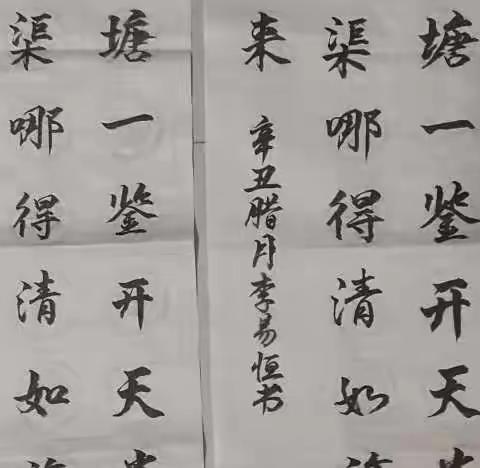 塘一鉴开天
渠哪得清如
来
辛丑腊月李易恒书
塘一鉴开天
渠哪得清如